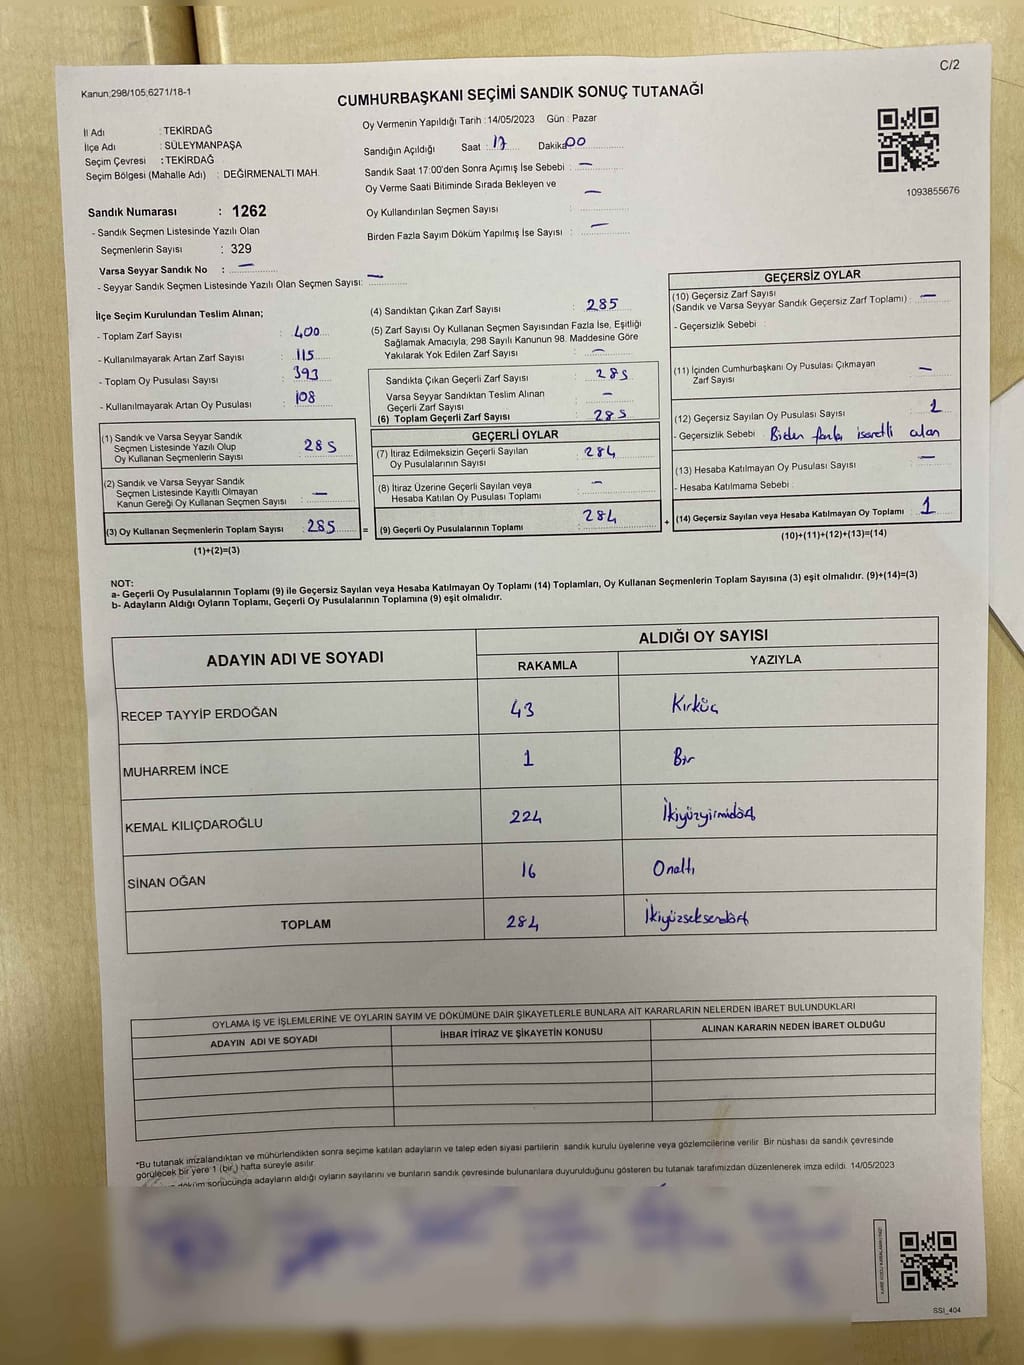 C/2
Kanun;298/105;6271/18-1
CUMHURBAŞKANI SEÇİMİ SANDIK SONUÇ TUTANAĞI
İl Adı : TEKİRDAĞ
İlçe Adı : SÜLEYMANPAŞA
Seçim Çevresi : TEKİRDAĞ
Seçim Bölgesi (Mahalle Adı) : DEĞİRMENALTI MAH.
Oy Vermenin Yapıldığı Tarih : 14/05/2023 Gün : Pazar
Sandığın Açıldığı Saat : 17 Dakika 00
Sandık Saat 17:00'den Sonra Açımış İse Sebebi : —
Oy Verme Saati Bitiminde Sırada Bekleyen ve
Oy Kullandırılan Seçmen Sayısı : —
Birden Fazla Sayım Döküm Yapılmış İse Sayısı : —
1093855676
Sandık Numarası : 1262
- Sandık Seçmen Listesinde Yazılı Olan
Seçmenlerin Sayısı : 329
Varsa Seyyar Sandık No : —
- Seyyar Sandık Seçmen Listesinde Yazılı Olan Seçmen Sayısı: —
İlçe Seçim Kurulundan Teslim Alınan;
- Toplam Zarf Sayısı : 400
- Kullanılmayarak Artan Zarf Sayısı : 115
- Toplam Oy Pusulası Sayısı : 393
- Kullanılmayarak Artan Oy Pusulası : 108
(1) Sandık ve Varsa Seyyar Sandık
Seçmen Listesinde Yazılı Olup
Oy Kullanan Seçmenlerin Sayısı : 285
(2) Sandık ve Varsa Seyyar Sandık
Seçmen Listesinde Kayıtlı Olmayan
Kanun Gereği Oy Kullanan Seçmen Sayısı : —
(3) Oy Kullanan Seçmenlerin Toplam Sayısı : 285
(1)+(2)=(3)
(4) Sandıktan Çıkan Zarf Sayısı : 285
(5) Zarf Sayısı Oy Kullanan Seçmen Sayısından Fazla İse, Eşitliği
Sağlamak Amacıyla; 298 Sayılı Kanunun 98. Maddesine Göre
Yakılarak Yok Edilen Zarf Sayısı : —
Sandıkta Çıkan Geçerli Zarf Sayısı : 285
Varsa Seyyar Sandıktan Teslim Alınan
Geçerli Zarf Sayısı : —
(6) Toplam Geçerli Zarf Sayısı : 285
GEÇERLİ OYLAR
(7) İtiraz Edilmeksizin Geçerli Sayılan
Oy Pusulalarının Sayısı : 284
(8) İtiraz Üzerine Geçerli Sayılan veya
Hesaba Katılan Oy Pusulası Toplamı : —
= (9) Geçerli Oy Pusulalarının Toplamı : 284
GEÇERSİZ OYLAR
(10) Geçersiz Zarf Sayısı
(Sandık ve Varsa Seyyar Sandık Geçersiz Zarf Toplamı) : —
- Geçersizlik Sebebi :
(11) İçinden Cumhurbaşkanı Oy Pusulası Çıkmayan
Zarf Sayısı : —
(12) Geçersiz Sayılan Oy Pusulası Sayısı : 1
- Geçersizlik Sebebi : Biden fazla isaretli olan
(13) Hesaba Katılmayan Oy Pusulası Sayısı : —
- Hesaba Katılmama Sebebi :
+ (14) Geçersiz Sayılan veya Hesaba Katılmayan Oy Toplamı : 1
(10)+(11)+(12)+(13)=(14)
NOT:
a- Geçerli Oy Pusulalarının Toplamı (9) ile Geçersiz Sayılan veya Hesaba Katılmayan Oy Toplamı (14) Toplamları, Oy Kullanan Seçmenlerin Toplam Sayısına (3) eşit olmalıdır. (9)+(14)=(3)
b- Adayların Aldığı Oyların Toplamı, Geçerli Oy Pusulalarının Toplamına (9) eşit olmalıdır.
ADAYIN ADI VE SOYADI
ALDIĞI OY SAYISI
RAKAMLA YAZIYLA
RECEP TAYYİP ERDOĞAN 43 Kırküç
MUHARREM İNCE 1 Bir
KEMAL KILIÇDAROĞLU 224 İkiyüzyirmidört
SİNAN OĞAN 16 Onaltı
TOPLAM 284 İkiyüzseksendört
OYLAMA İŞ VE İŞLEMLERİNE VE OYLARIN SAYIM VE DÖKÜMÜNE DAİR ŞİKAYETLERLE BUNLARA AİT KARARLARIN NELERDEN İBARET BULUNDUKLARI
ADAYIN ADI VE SOYADI İHBAR İTİRAZ VE ŞİKAYETİN KONUSU ALINAN KARARIN NEDEN İBARET OLDUĞU
*Bu tutanak imzalandıktan ve mühürlendikten sonra seçime katılan adayların ve talep eden siyasi partilerin sandık kurulu üyelerine veya gözlemcilerine verilir. Bir nüshası da sandık çevresinde
görülecek bir yere 1 (bir) hafta süreyle asılır.
döküm sonucunda adayların aldığı oyların sayılarını ve bunların sandık çevresinde bulunanlara duyurulduğunu gösteren bu tutanak tarafımızdan düzenlenerek imza edildi. 14/05/2023
SSI_404